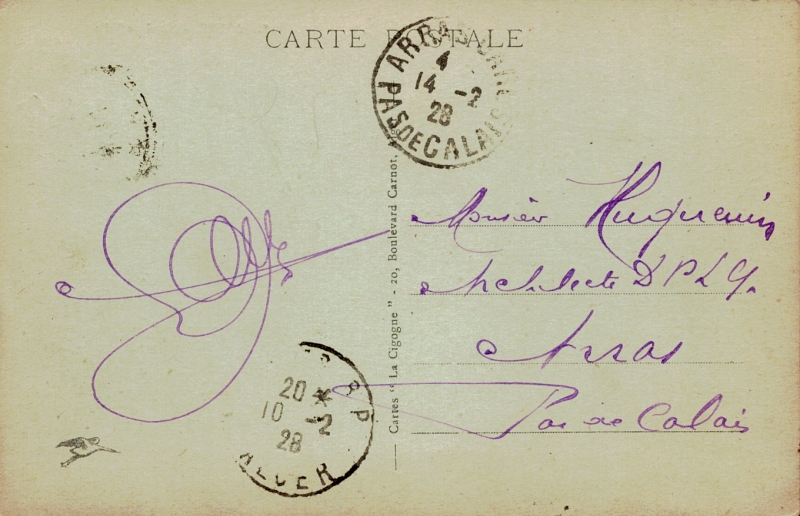 CARTE POSTALE
ARRAS GARE
4
14 -2
28
PAS DE CALAIS
Monsieur Huguenin
Architecte D P L G.
Arras
Pas de Calais
Cartes "La Cigogne" - 20, Boulevard Carnot,
20 *
10 -2
28
ALGER
R P